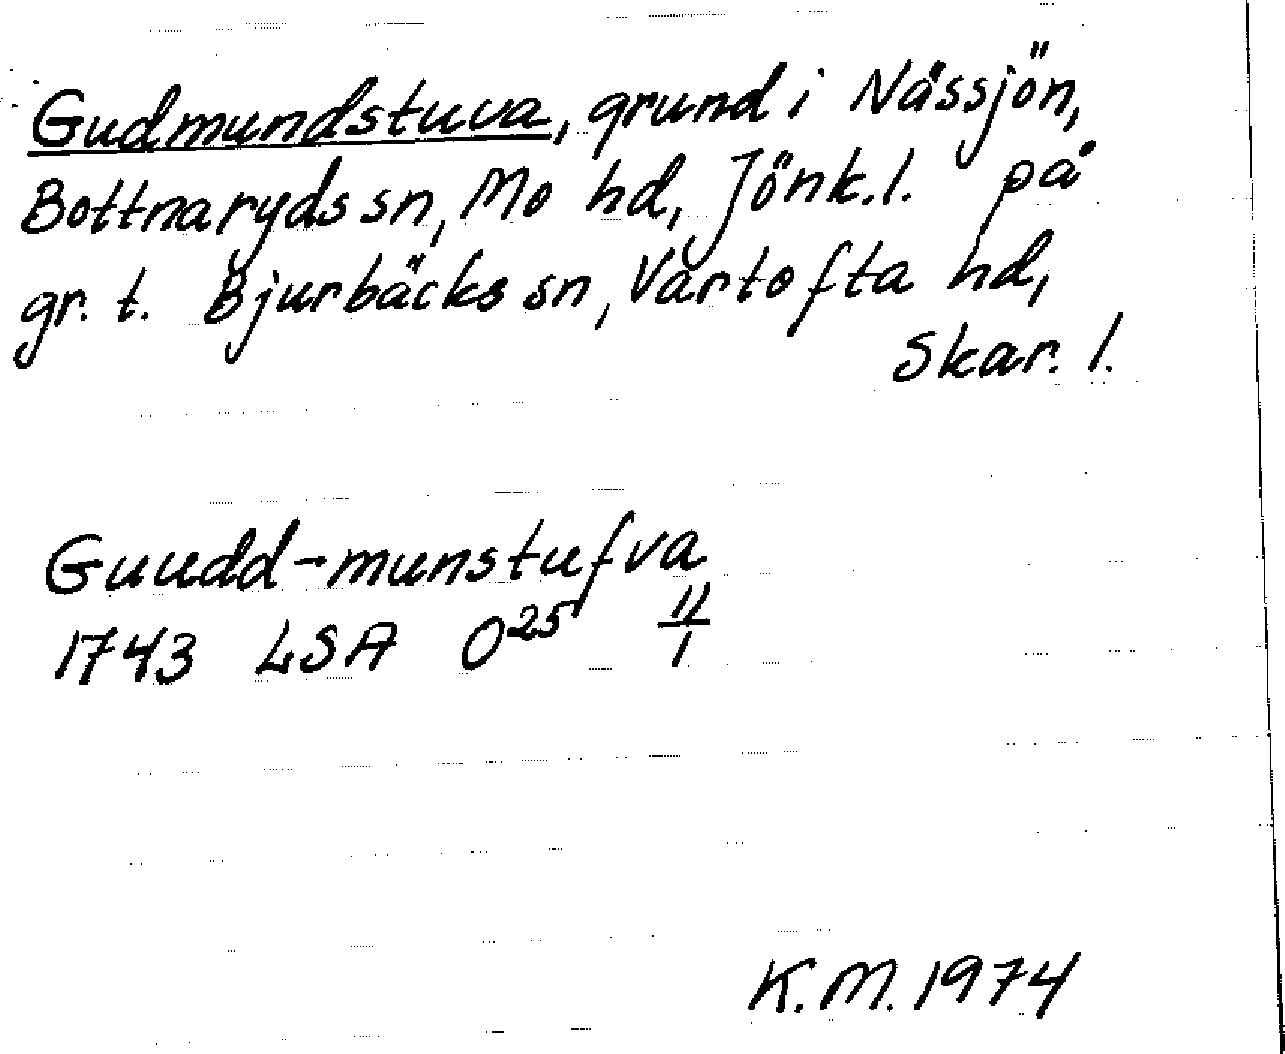 Gudmundstuva, grund i Nässjön,
Bottnaryds sn, Mo hd, Jönk. l. på
gr. t. Bjurbäcks sn, Vartofta hd,
Skar. l.
Guudd-munstufva
1743 LSA O25 11/1
K.M. 1974